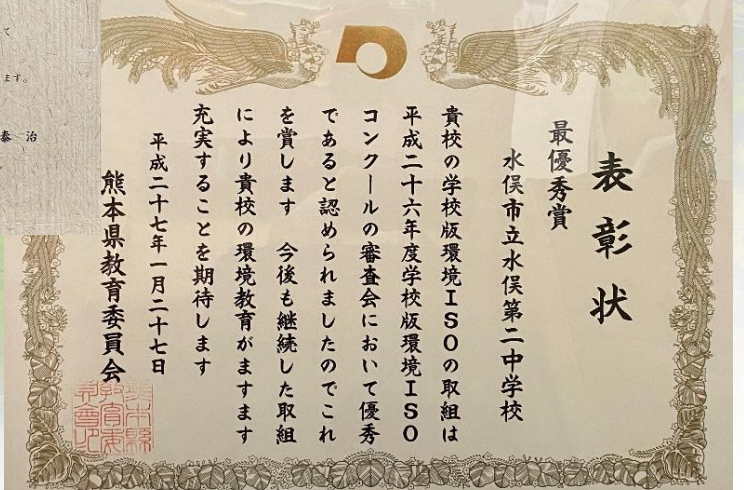 表彰状
最優秀賞
水俣市立水俣第二中学校
貴校の学校版環境ISOの取組は
平成二十六年度学校版環境ISO
コンクールの審査会において優秀
であると認められましたのでこれ
を賞します　今後も継続した取組
により貴校の環境教育がますます
充実することを期待します
平成二十七年一月二十七日
熊本県教育委員会
て
ます。
泰治